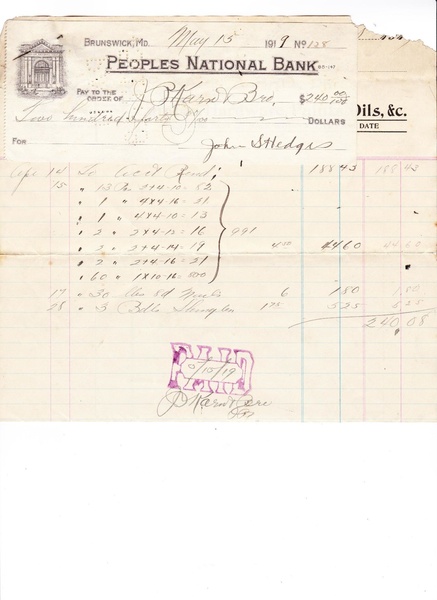 BRUNSWICK, MD. May 15 1919 No 128
PEOPLES NATIONAL BANK 65-147
PAY TO THE ORDER OF J P Karn & Bro, $240 00/100
Two hundred & forty DOLLARS
FOR John S Hedges
Oils, &c.
DATE
14 To Rend; 188 43 188 43
15 " 13 2x4-10 = 82
" 1 " 4x4-16 = 21
" 1 " 4x4-10 = 13
" 2 " 2x4-12 = 16 991
" 2 " 2x4-14 = 19 44 60 44 60
" 2 " 2x4-16 = 21
" 60 " 1x10-16 = 800
17 " 30 lbs 8d Nails 6 1 80 1 80
28 " 3 Bdls Shingles 1 75 5 25 5 25
240.08
PAID
5/15/19
J P Karn & Bro